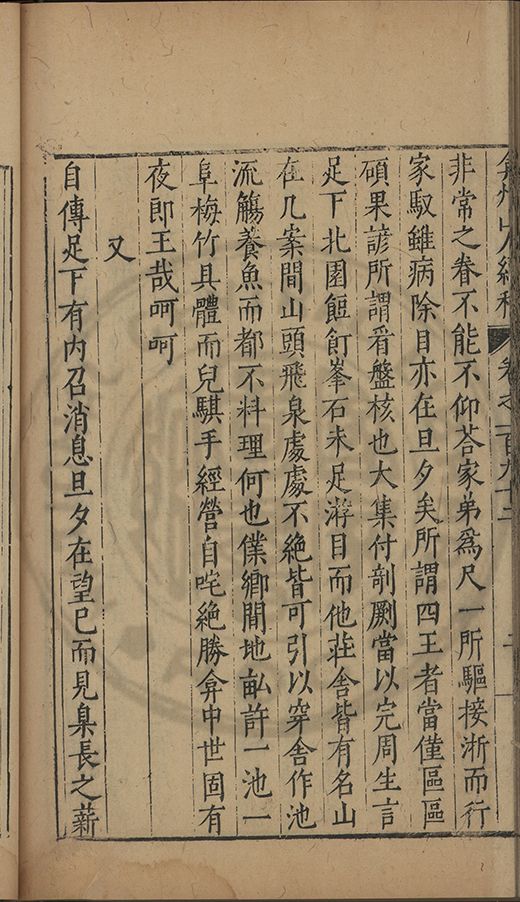 弇州山人續稿 卷之一百九十二
非常之眷不能不仰荅家弟為尺一所驅接淅而行
家馭雖病除目亦在旦夕矣所謂四王者當僅區區
碩果諺所謂看盤核也大集付剞劂當以完周生言
足下北園飣餖峯石未足游目而他莊舍皆有名山
在几案間山頭飛泉處處不絶皆可引以穿舍作池
流觴養魚而都不料理何也僕鄉間地畝許一池一
阜梅竹具體而兒騏手經營自咤絶勝弇中世固有
夜郎王哉呵呵
又
自傳足下有內召消息旦夕在望已而見臬長之薪